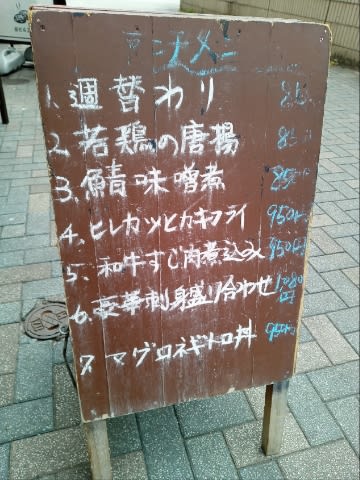 1. 週替わり 850
2. 若鶏の唐揚 850
3. 鯖味噌煮 850
4. ヒレカツとカキフライ 950円
5. 和牛すじ肉煮込み 950円
6. 豪華刺身盛り合わせ 1,080円
7. マグロネギトロ丼 950円